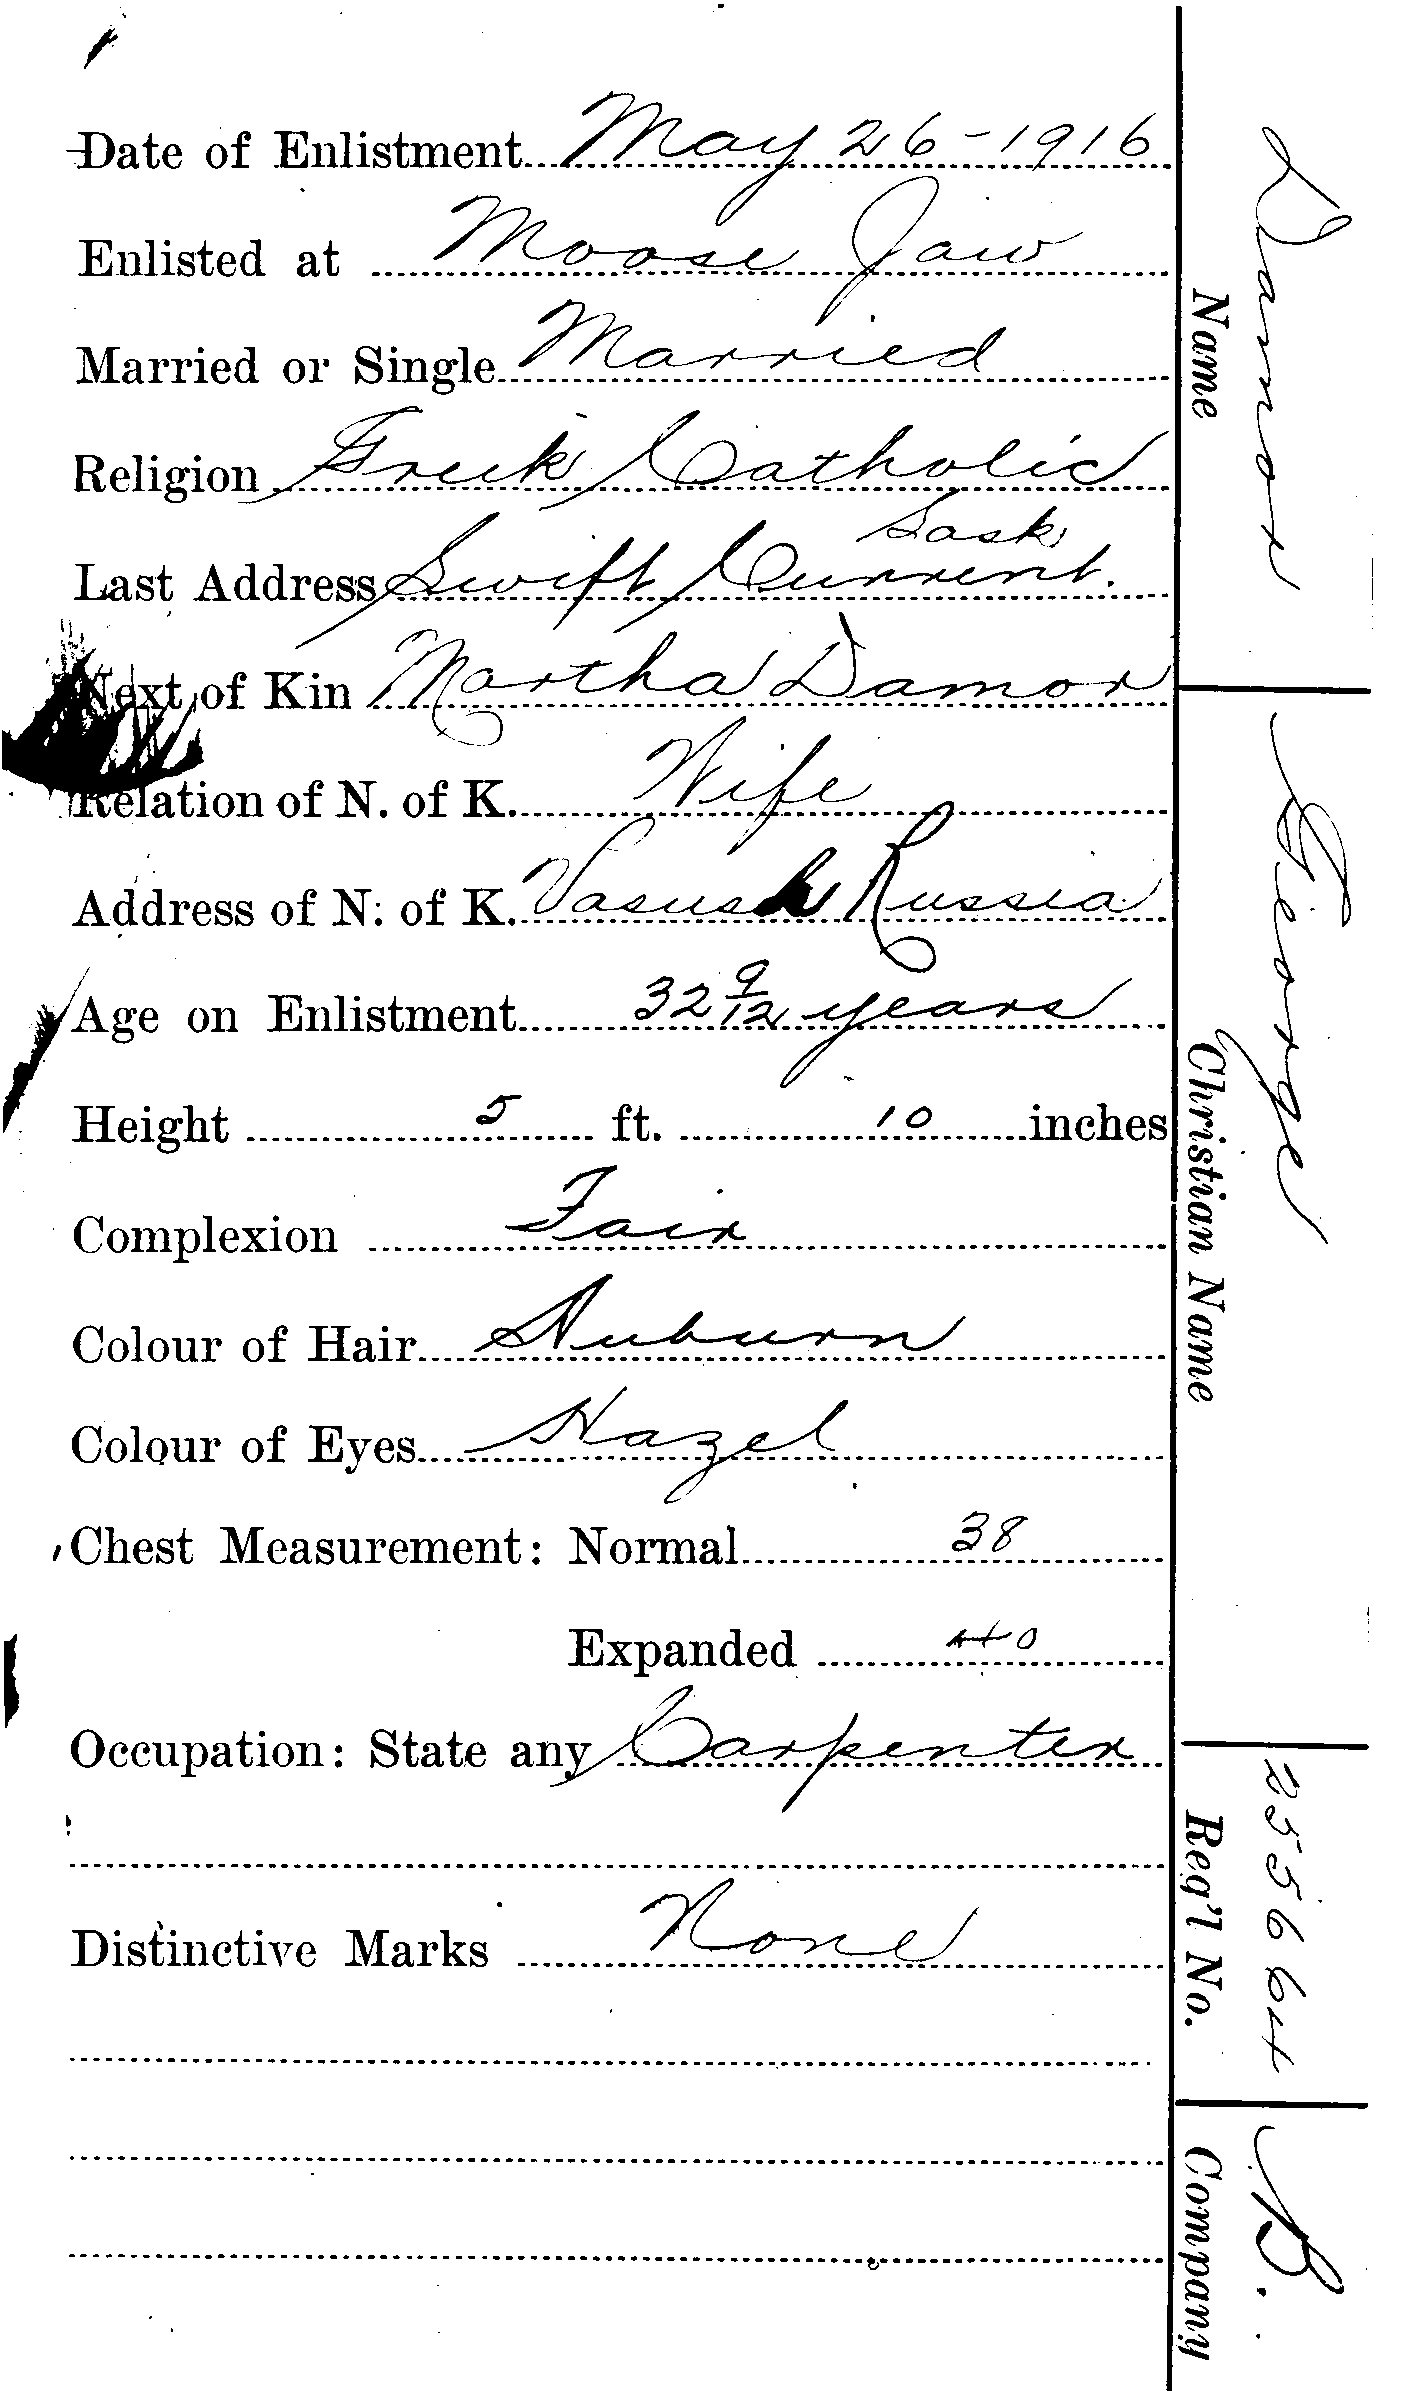 Date of Enlistment May 26-1916
Enlisted at Moose Jaw
Married or Single Married
Religion Greek Catholic
Sask
Last Address Swift Current.
Next of Kin Martha Damor
Relation of N. of K. Wife
Address of N. of K. Russia
Age on Enlistment 32 9/12 years
Height 5 ft. 10 inches
Complexion Fair
Colour of Hair Auburn
Colour of Eyes Hazel
Chest Measurement: Normal 38
Expanded 40
Occupation: State any Carpenter
Distinctive Marks None
Damor
Name
George
Christian Name
255664
Reg'l No.
B.
Company